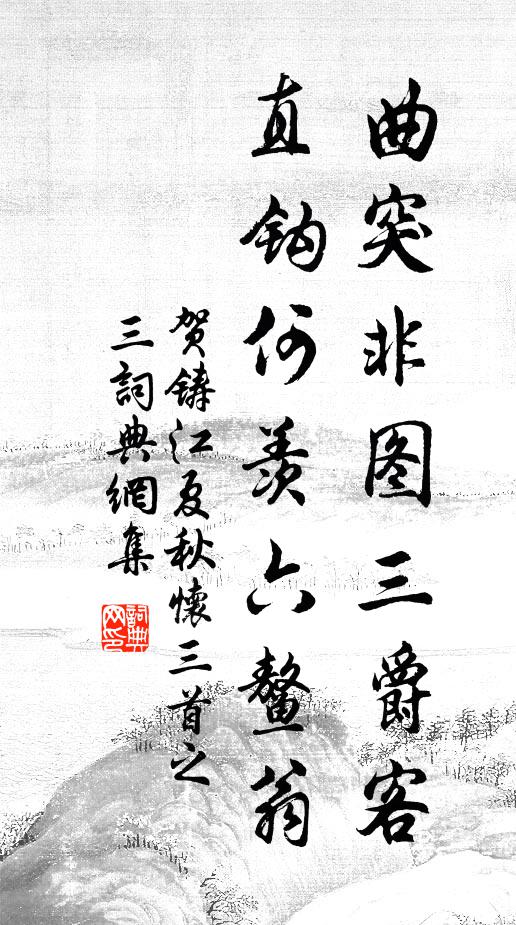 曲突非图三爵客
直钩何羡六鳌翁
贺铸江夏秋怀三首之
三詞典網集
詞典網印